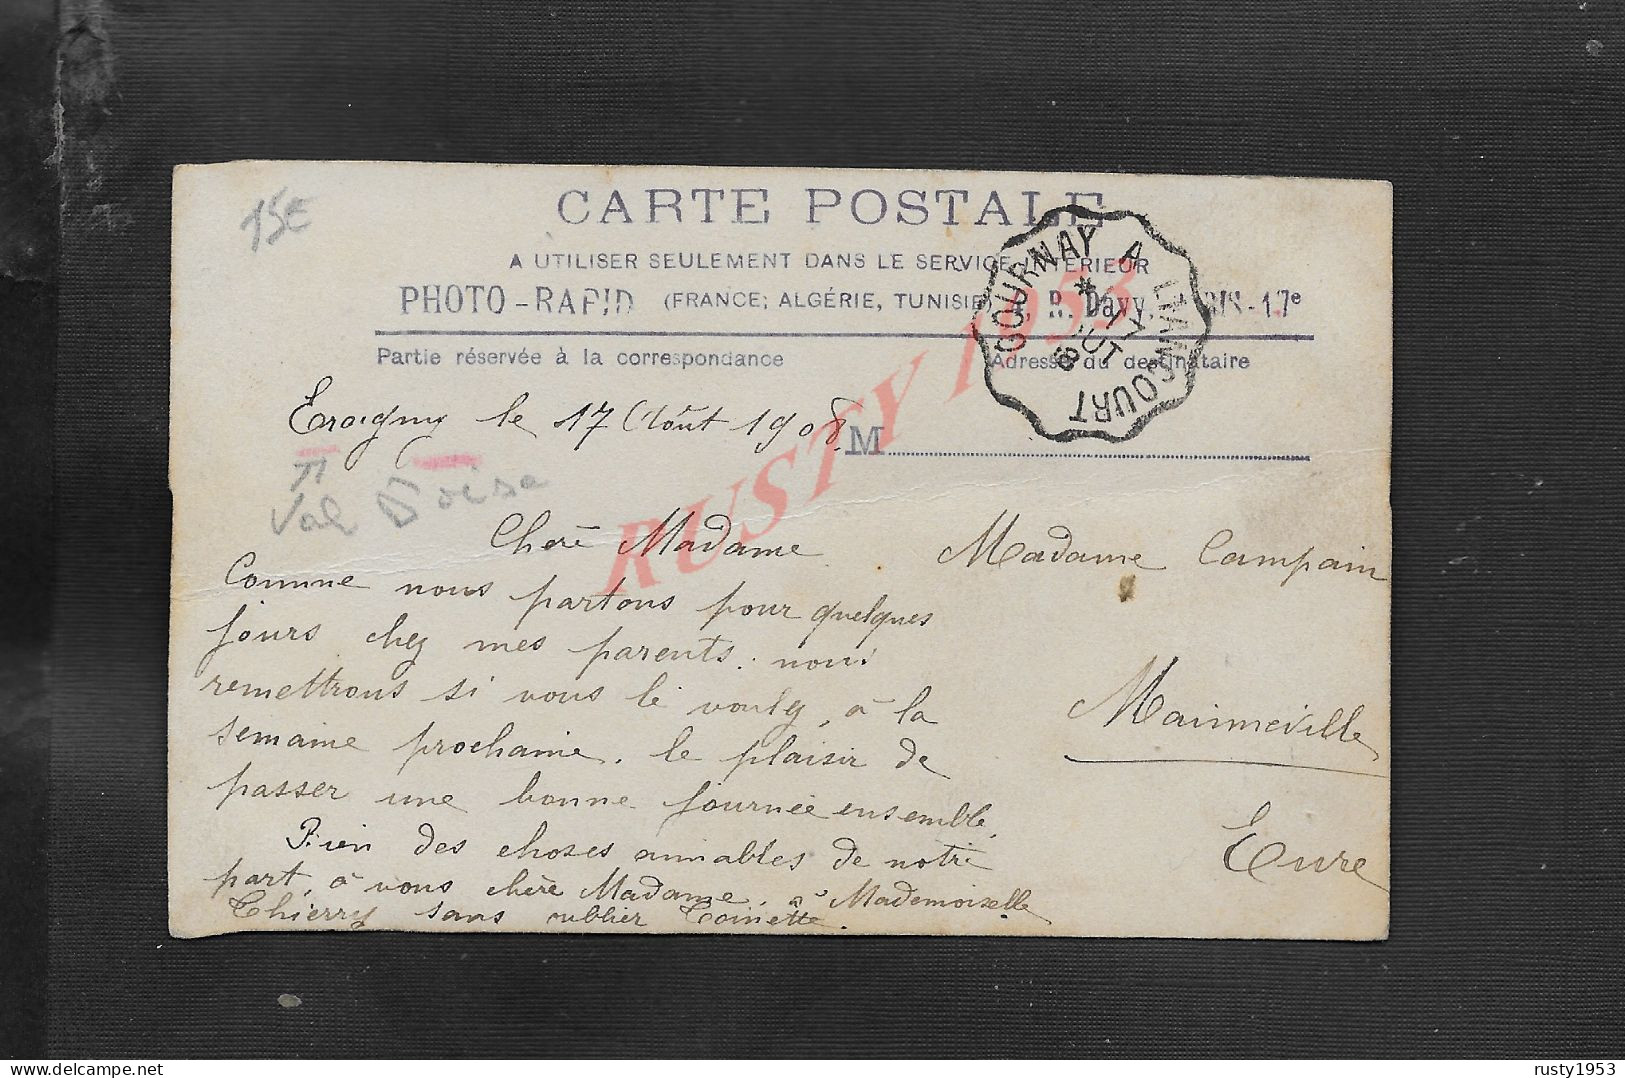 15€
CARTE POSTALE
A UTILISER SEULEMENT DANS LE SERVICE INTÉRIEUR
PHOTO-RAPID (FRANCE; ALGÉRIE, TUNISIE) A. R. Davy, PARIS-17e
Partie réservée à la correspondance
Adresse du destinataire
GOURNAY A LIANCOURT
* 17
AOUT
08
Eragny le 17 Août 1908.
M
Val D oise
Chère Madame
Comme nous partons pour quelques
jours chez mes parents. nous
remettrons si vous le voulez, à la
semaine prochaine, le plaisir de
passer une bonne journée ensemble.
Bien des choses aimables de notre
part, à vous chère Madame, à Mademoiselle
Thierry sans oublier Toinette.
Madame Campain
Mainneville
Eure
RUSTY 1953
delcampe.net
rusty1953